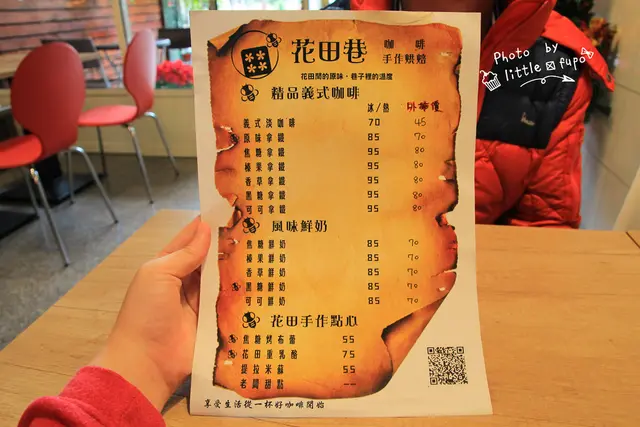 花田巷 咖啡 手作烘焙
花田間的原味・巷子裡的溫度
精品義式咖啡
冰/熱 外帶價
義式淡咖啡 70 45
原味拿鐵 85 70
焦糖拿鐵 95 80
榛果拿鐵 95 80
香草拿鐵 95 80
黑糖拿鐵 95 80
可可拿鐵 95 80
風味鮮奶
焦糖鮮奶 85 70
榛果鮮奶 85 70
香草鮮奶 85 70
黑糖鮮奶 85 70
可可鮮奶 85 70
花田手作點心
焦糖烤布蕾 55
花田重乳酪 75
提拉米蘇 55
老闆甜點 --
享受生活從一杯好咖啡開始
Photo by
little fupo